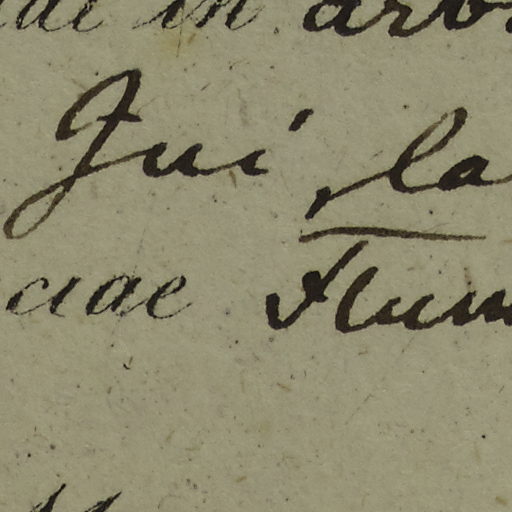 in arb
Jui, la
ciae Flum